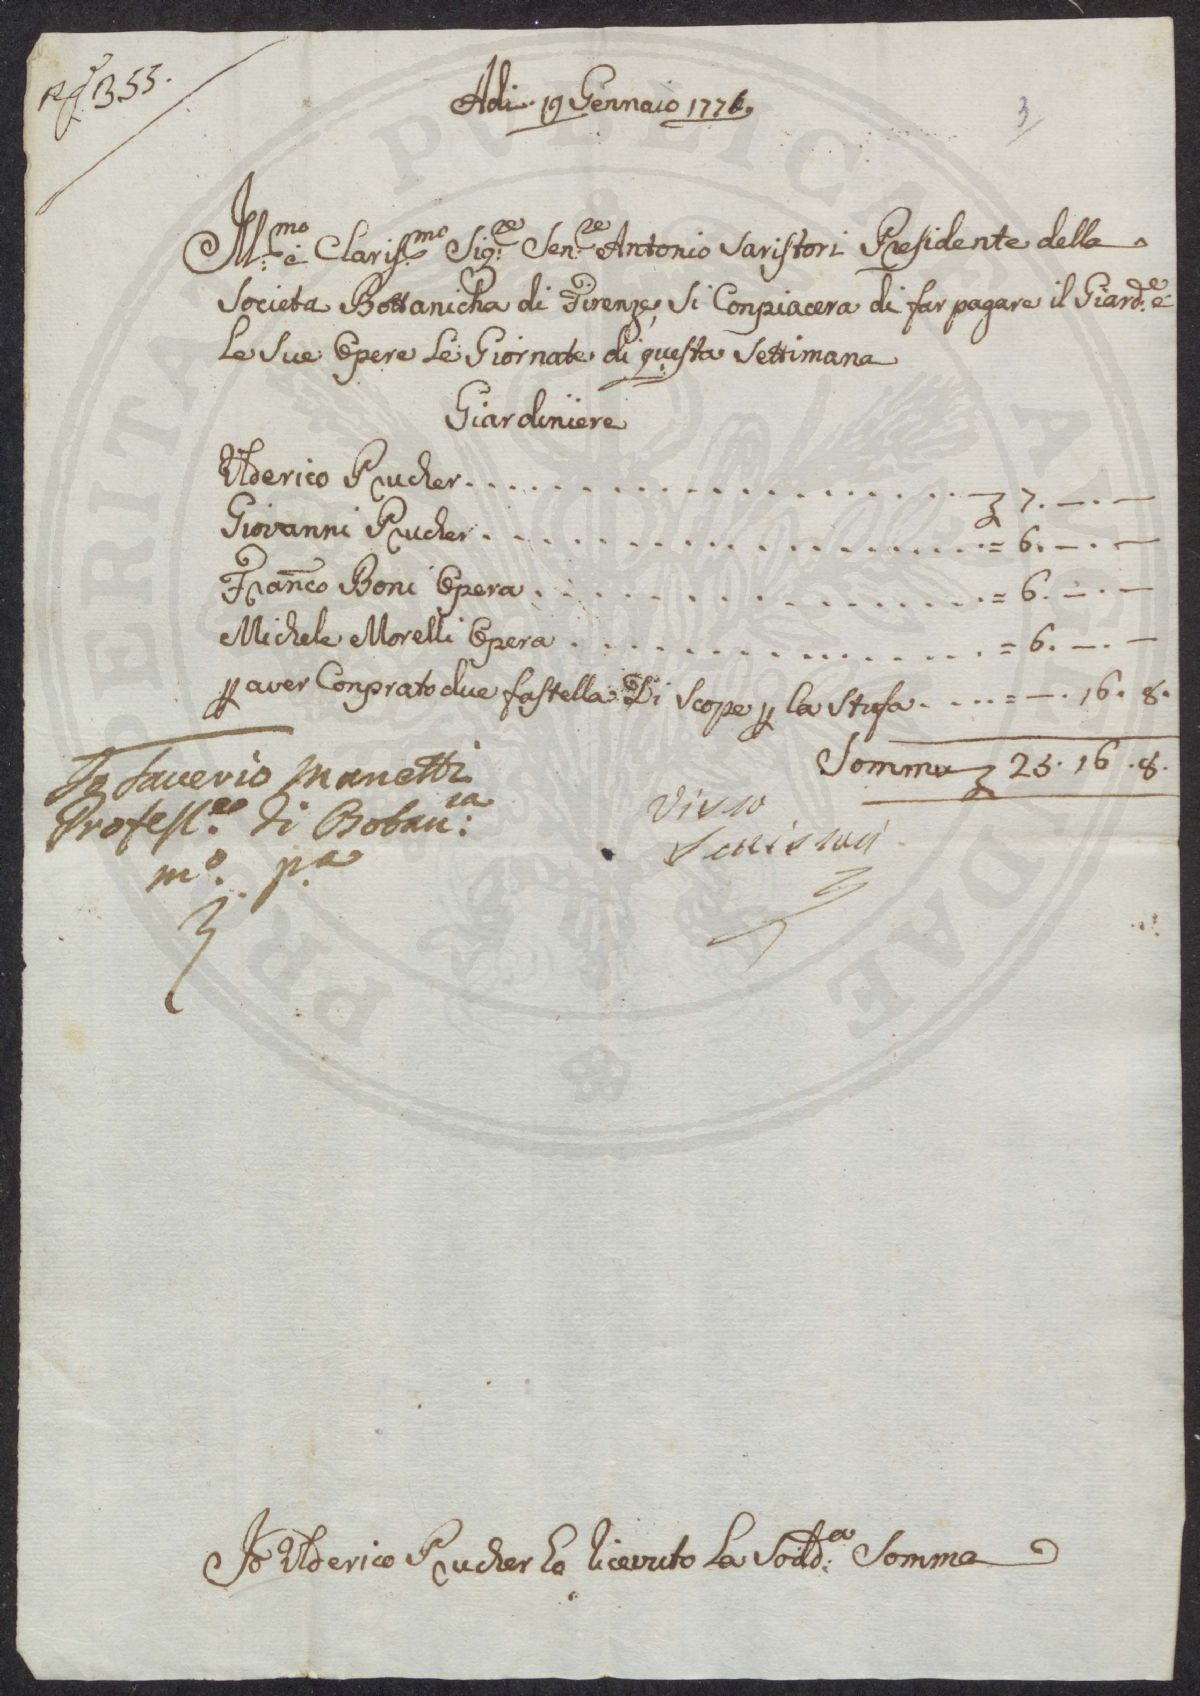 353.
Adi 19 Gennaio 1776
3
Ill:mo è Claris:mo Sig:re Sen:re Antonio Saristori Presidente della
Societa Bottanicha di Firenze, Si Conpiacera di far pagare il Giard:e è
Le Sue Opere Le Giornate di questa Settimana
Giardiniere
Ulderico Prucher . . . . . . . . 7. — . —
Giovanni Prucher . . . . . . . . = 6. — . —
Fran:co Boni Opera . . . . . . . . = 6. — . —
Michele Morelli Opera . . . . . . . . = 6. — . —
p aver Conprato due fastella Di Scope p la Stufa . . . . = — . 16 . 8.
Somma 25 . 16 . 8.
Io Saverio Manetti
Profess:re di Botan:ca
m:o p:a
Visto
Io Ulderico Prucher ho ricevuto La Sodd:a Somma
PROSPERITATE PUBLICA AUGENDAE